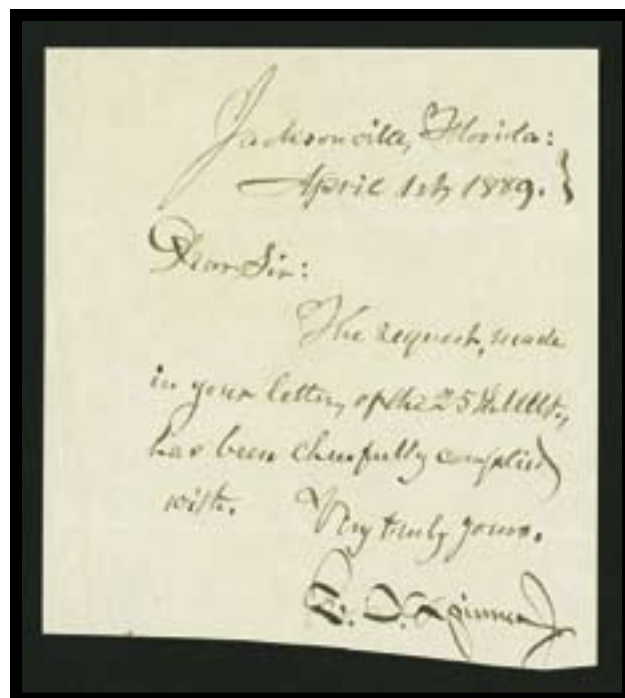 Jacksonville, Florida:
April 1st, 1889.
Dear Sir:
The request, made
in your letter, of the 25th Ult.,
has been cheerfully complied
with. Very truly yours.